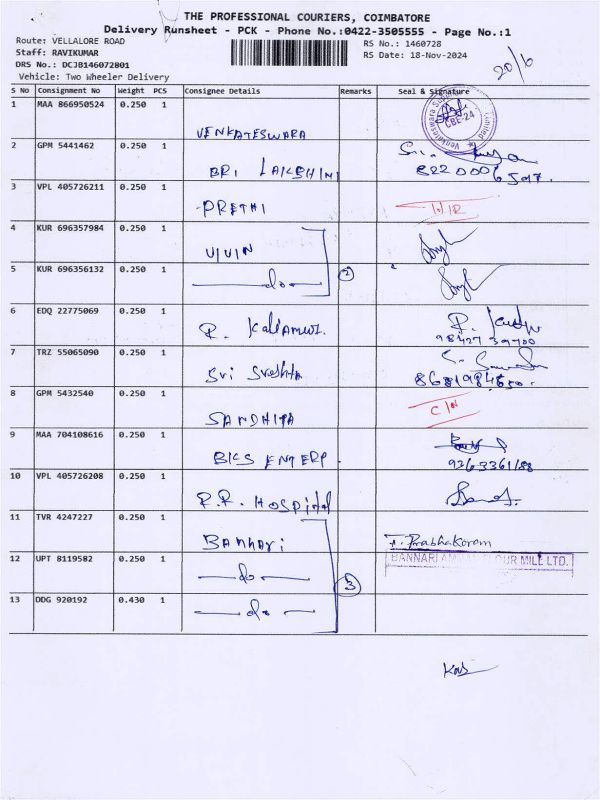 THE PROFESSIONAL COURIERS, COIMBATORE
Delivery Runsheet - PCK - Phone No.:0422-3505555 - Page No.:1
Route: VELLALORE ROAD RS No.: 1460728
Staff: RAVIKUMAR RS Date: 18-Nov-2024
DRS No.: DCJB146072801 20/6
Vehicle: Two Wheeler Delivery
S No Consignment No Weight PCS Consignee Details Remarks Seal & Signature
1 MAA 866950524 0.250 1 VENKATESWARA CBE-24
2 GPM 5441462 0.250 1 SRI LAKSHINI
3 VPL 405726211 0.250 1 PRETHI
4 KUR 696357984 0.250 1 VIVIN
5 KUR 696356132 0.250 1 —do— 2
6 EDQ 22775069 0.250 1 R.
98427 39700
7 TRZ 55065090 0.250 1 Sri
8681984650.
8 GPM 5432540 0.250 1 SANDHIYA C/N
9 MAA 704108616 0.250 1 BKS ENTERP
10 VPL 405726208 0.250 1 R.R. HOSPital
11 TVR 4247227 0.250 1 BANNARi Prabhakaran
BANNARI MILL LTD.
12 UPT 8119582 0.250 1 —do— 3
13 DDG 920192 0.430 1 —do—